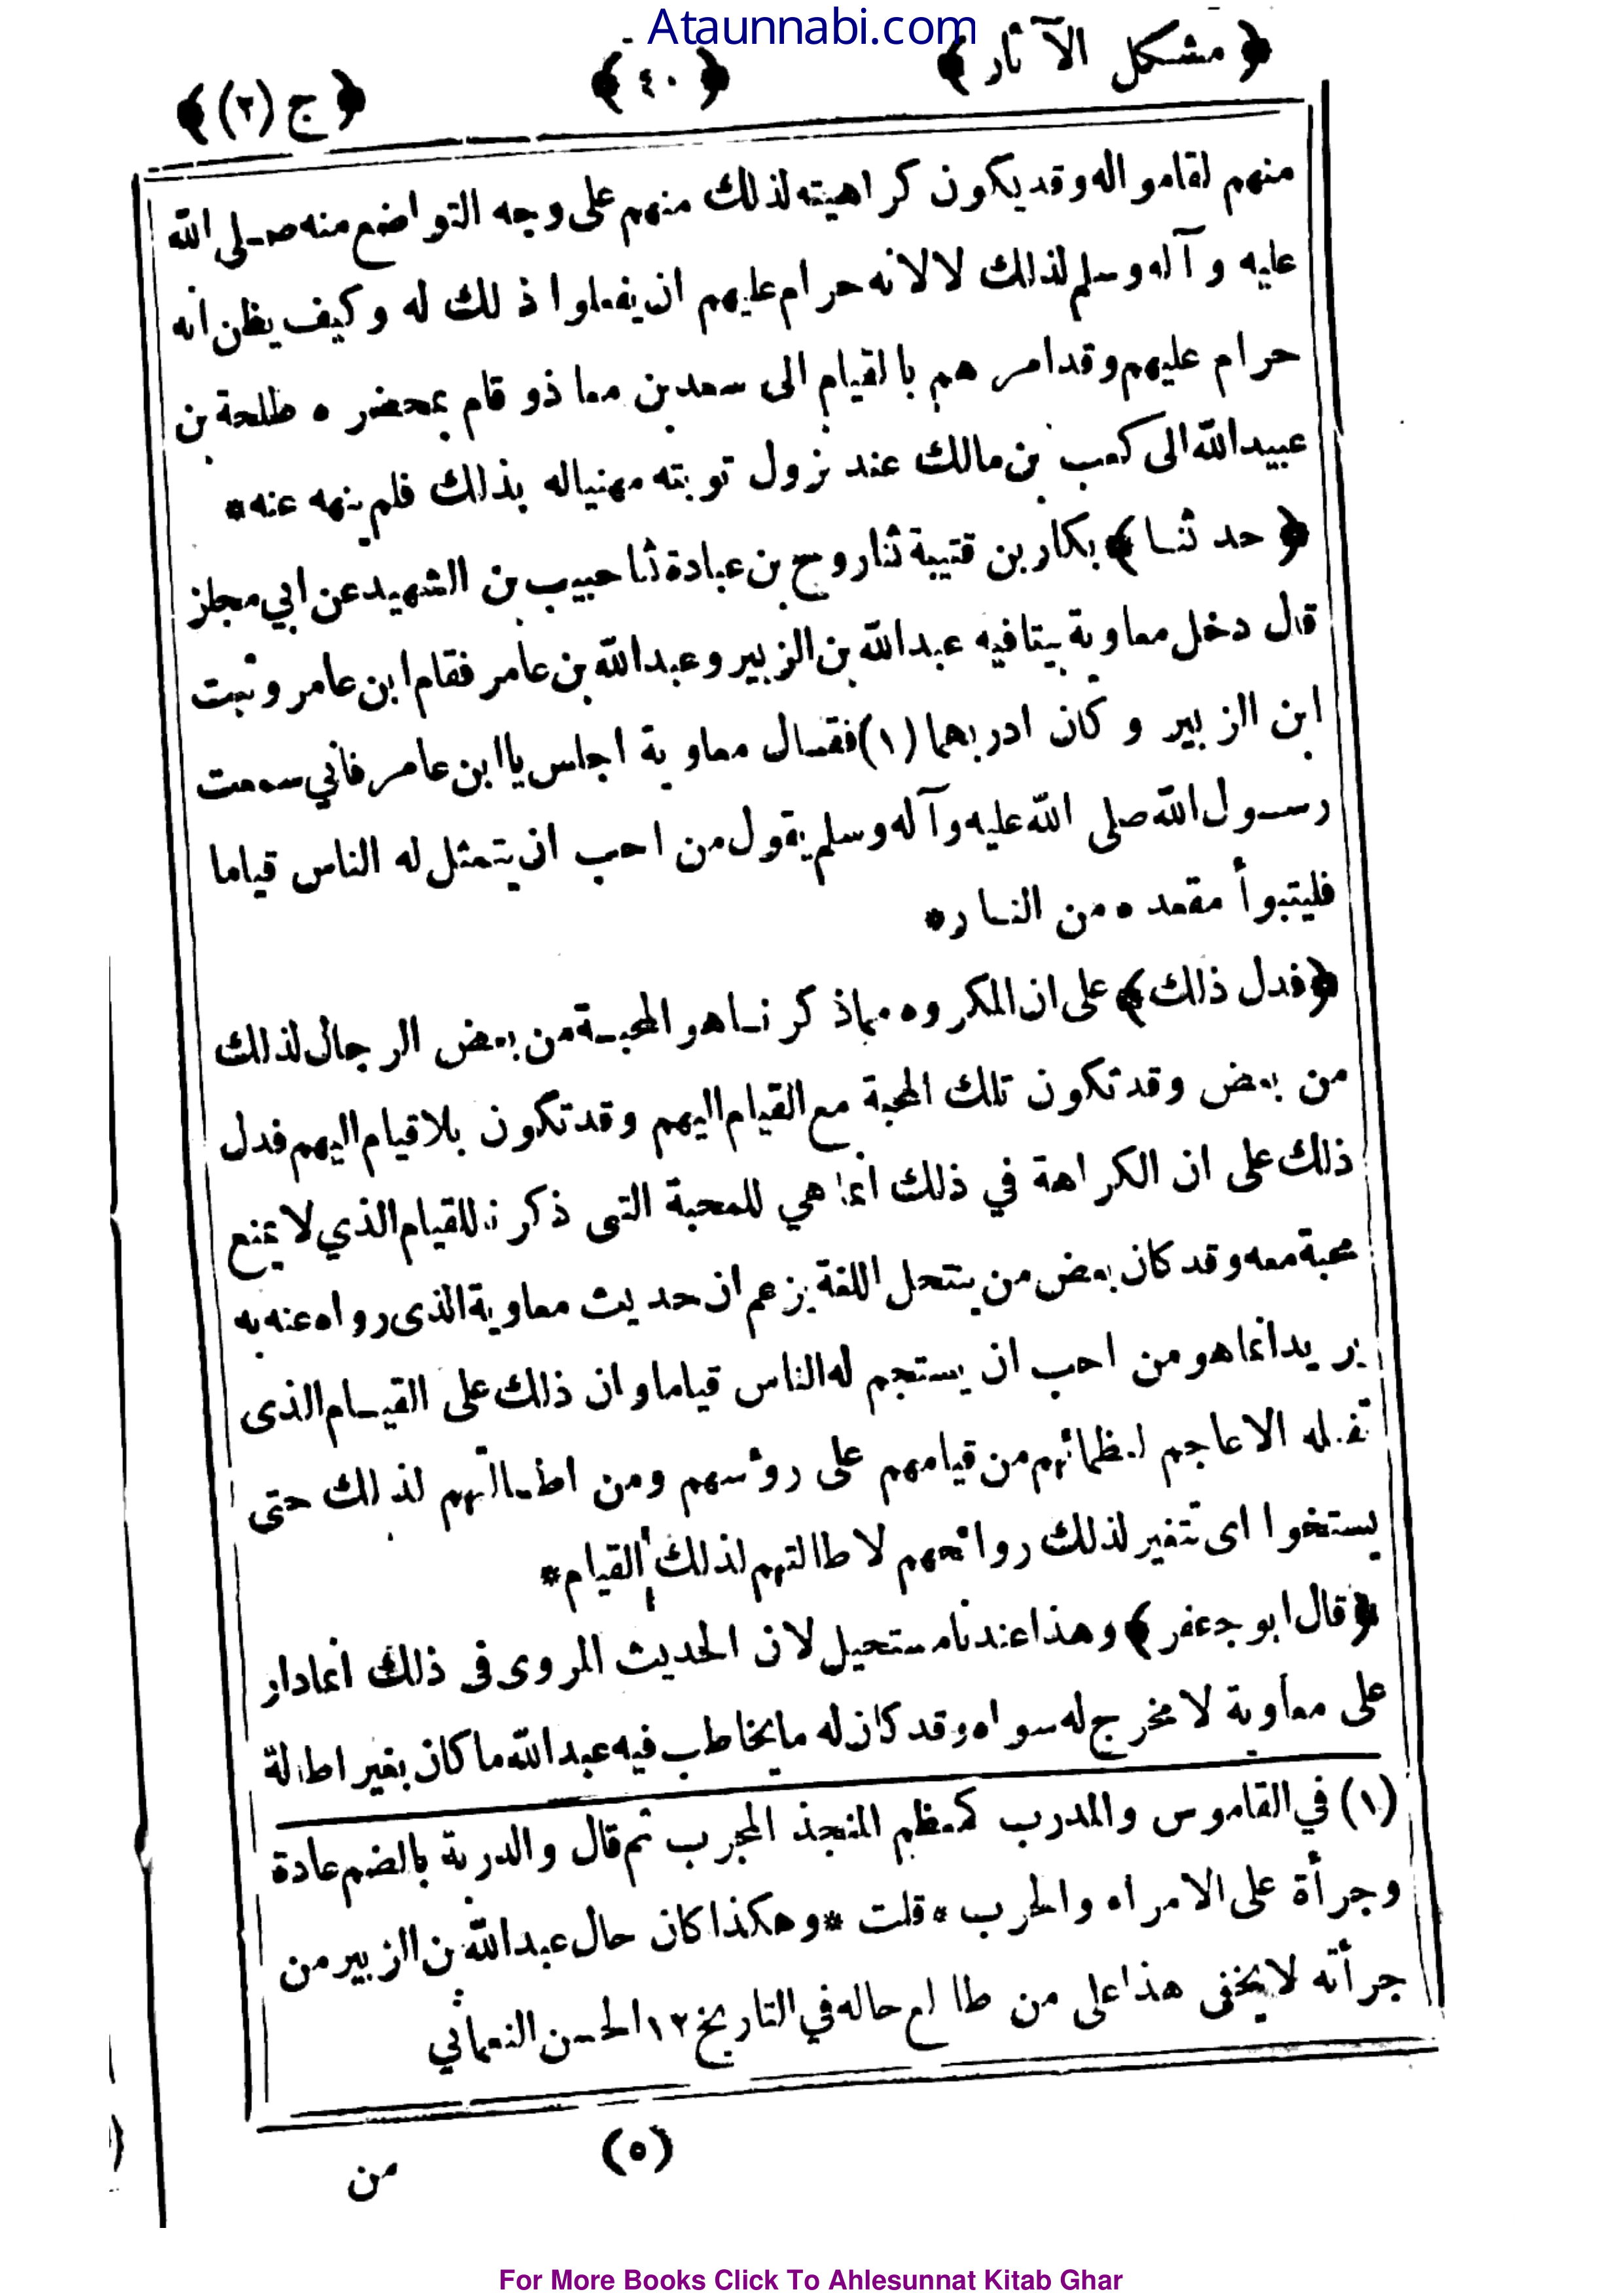 Ataunnabi.com
﴿ مشكل الآثار ﴾ ﴿ ٤٠ ﴾ ﴿ ج (٢) ﴾
منهم لقاموا له وقد يكون كراهيته لذلك منهم على وجه التواضع منه صلى الله
عليه وآله وسلم لذلك لا لانه حرام عليهم ان يفعلوا ذلك له وكيف يظن انه
حرام عليهم وقد امرهم بالقيام الى سعد بن معاذ وقام بمحضره طلحة بن
عبيد الله الى كعب بن مالك عند نزول توبته مهنياله بذلك فلم ينهه عنه *
﴿ حدثنا ﴾ بكار بن قتيبة ثنا روح بن عبادة ثنا حبيب بن الشهيد عن ابي مجلز
قال دخل معاوية بيتا فيه عبد الله بن الزبير وعبد الله بن عامر فقام ابن عامر وثبت
ابن الزبير وكان ادربهما (١) فقال معاوية اجلس يا ابن عامر فاني سمعت
رسول الله صلى الله عليه وآله وسلم يقول من احب ان يتمثل له الناس قياما
فليتبوأ مقعده من النار *
﴿ فدل ذلك ﴾ على ان المكروه مماذكرنا هو المحبة من بعض الرجال لذلك
من بعض وقد تكون تلك المحبة مع القيام اليهم وقد تكون بلا قيام اليهم فدل
ذلك على ان الكراهة في ذلك انما هي للمحبة التى ذكرنا للقيام الذي لا يمنع
محبة معه وقد كان بعض من ينتحل اللغة يزعم ان حديث معاوية الذى رواه عنه به
يريد انما هو من احب ان يستجم له الناس قياما وان ذلك على القيام الذى
تفعله الاعاجم لعظمائهم من قيامهم على رؤسهم ومن اطالتهم لذلك حتى
يستخوا اى تتغير لذلك روائحهم لاطالتهم لذلك القيام *
﴿ قال ابو جعفر ﴾ وهذا عندنا مستحيل لان الحديث المروى فى ذلك انما دار
على معاوية لا مخرج له سواه وقد كان له ما يخاطب فيه عبد الله ما كان بغير اطالة
(١) في القاموس والمدرب كمعظم المنجذ المجرب ثم قال والدربة بالضم عادة
وجرأة على الامراه والحرب * قلت * وهكذا كان حال عبد الله بن الزبير من
جرأته لا يخفى هذا على من طالع حاله في التاريخ ١٢ الحسن النعماني
(٥) من
For More Books Click To Ahlesunnat Kitab Ghar